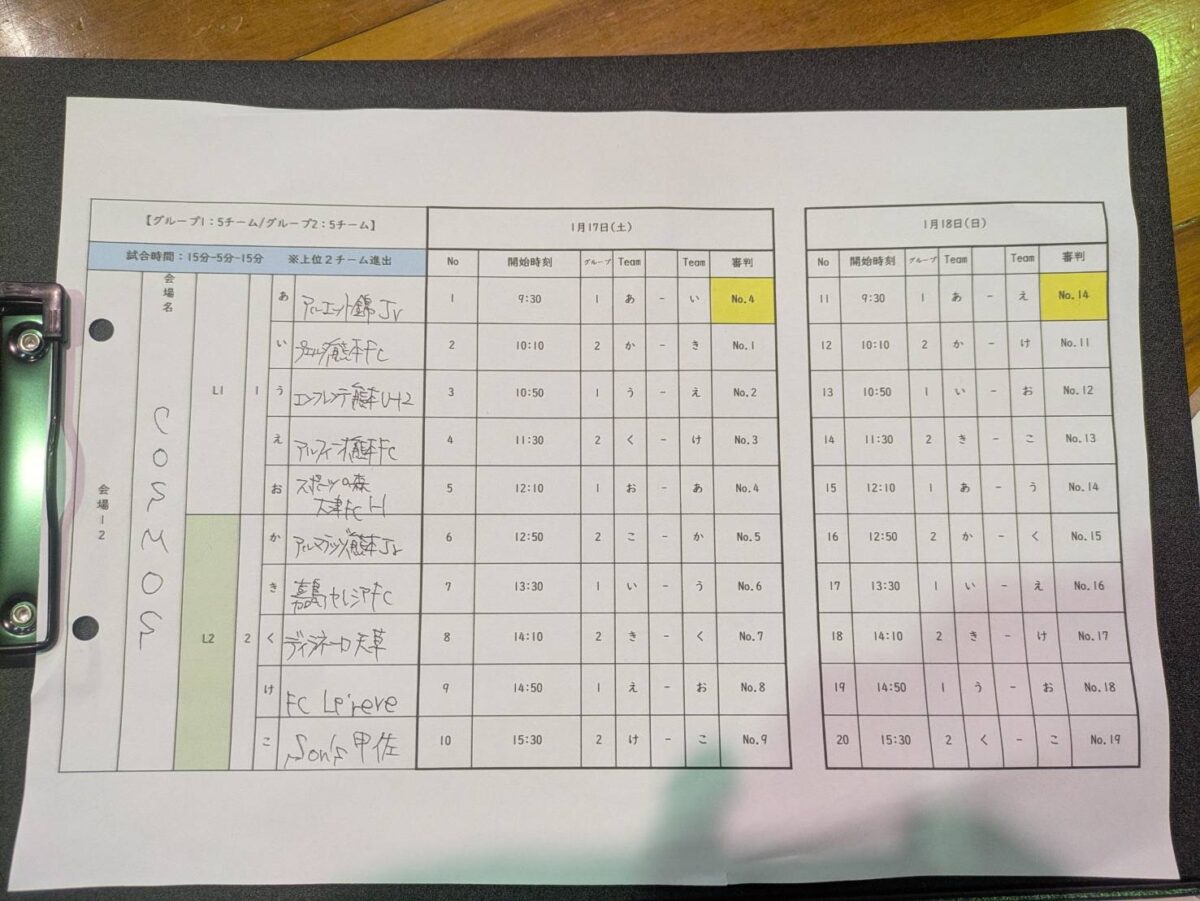 【グループ1：5チーム/グループ2：5チーム】
試合時間：15分-5分-15分 ※上位2チーム進出
会場名
会場12
COSMOS
L1 1
あ アルエット錦Jr
い 熊本FC
う エンフレンテ熊本U-12
え 熊本FC
お スポーツの森
大津FC
L2 2
か 熊本Jr
き 嘉島セレジアFC
く ディアネーロ天草
け FC Le'reve
こ Son's 甲佐
1月17日(土)
No 開始時刻 グループ Team Team 審判
1 9:30 1 あ - い No.4
2 10:10 2 か - き No.1
3 10:50 1 う - え No.2
4 11:30 2 く - け No.3
5 12:10 1 お - あ No.4
6 12:50 2 こ - か No.5
7 13:30 1 い - う No.6
8 14:10 2 き - く No.7
9 14:50 1 え - お No.8
10 15:30 2 け - こ No.9
1月18日(日)
No 開始時刻 グループ Team Team 審判
11 9:30 1 あ - え No.14
12 10:10 2 か - け No.11
13 10:50 1 い - お No.12
14 11:30 2 き - こ No.13
15 12:10 1 あ - う No.14
16 12:50 2 か - く No.15
17 13:30 1 い - え No.16
18 14:10 2 き - け No.17
19 14:50 1 う - お No.18
20 15:30 2 く - こ No.19